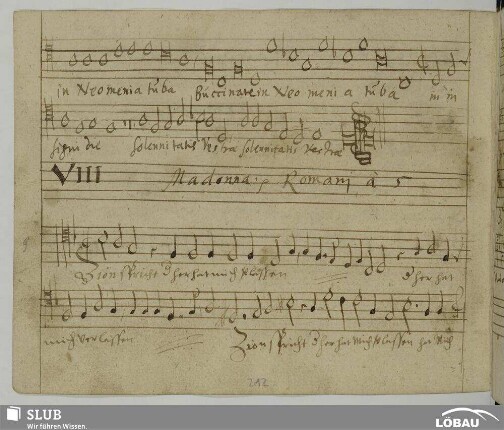 in Neomenia tuba Buccinate in Neomenia tuba in in
signi die solennitatis vestra solennitatis vestra
VIII Madonna Romani à 5
Zion spricht d herr hat mich verlassen d herr hat
mich verlassen Zion spricht d herr hat mich verlassen hat mich
SLUB
Wir führen Wissen.
LÖBAU